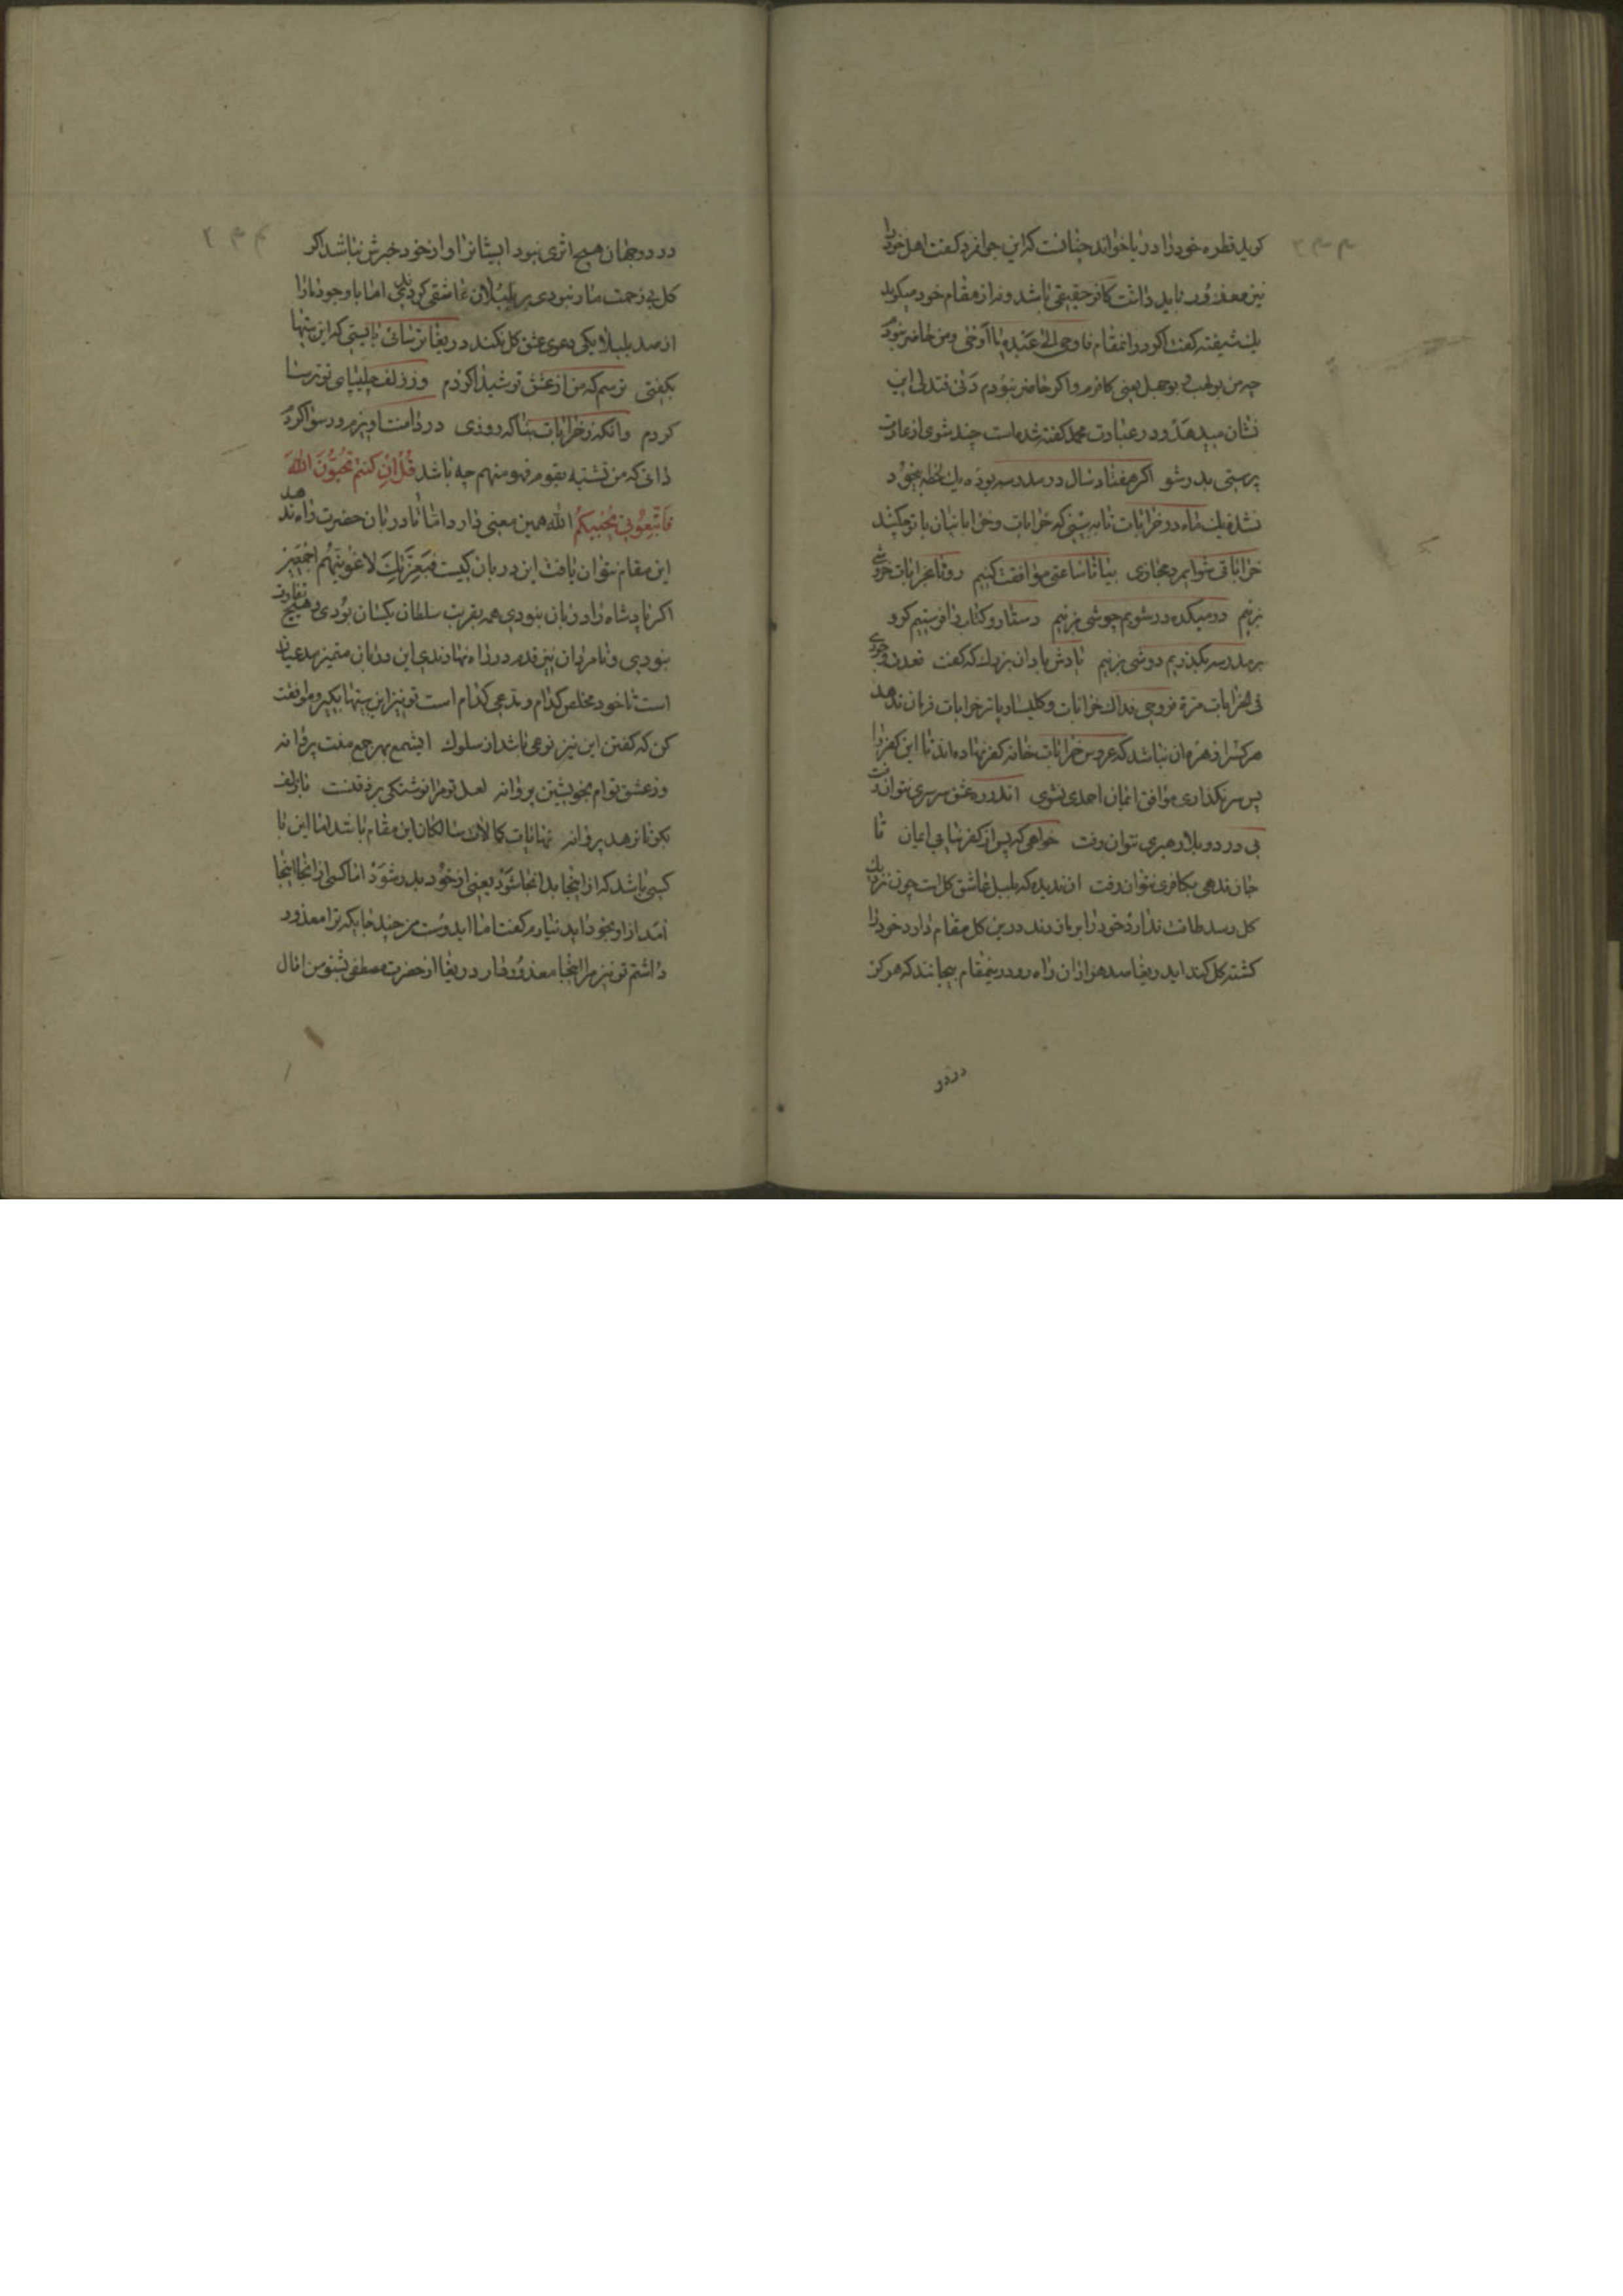 کوید قطره خود را دریا خواند چنانست که این جوانمرد کفت اهل خود را
نیز معذور باید داشت کافر حقیقی باشد و نه از مقام خود میکوید
یک شیفته کفت اکر در آنمقام فاوحی الی عبده ما اوحی ومن حاضر نبود
چه من بولهب و چه بوجهل یعنی کافرم واکر حاضر نبودم دنی فتدلی این
نشان میدهد و در عبادت محمد کفته شده است چند شوی از عادت
پرستی بدر شو اکر هفتاد سال در مدرسه بوده یک لحظه بیخود
نشده یک ماه در خرابات تا به بینی که خرابات و خراباتیان با تو چکنند
خراباتی شو ایمرد مجازی بیا تا ساعتی موافقت کنیم رو تا بخرابات خروشی
بزنیم در میکده در شویم جوشی بزنیم دستار و کتاب را فروشیم کرو
بر مدرسه بکذریم دوشی بزنیم
فی الخرابات مرة فروحی فداک خرابات و کلیسا و باز خرابات فرمان ندهد
هرکسرا فرمان نباشد که عروس خرابات خانه کفر نهاده اند تا این کفر را
پس سر نکذاری موافق ایمان احمدی نشوی اندر ره عشق سرسری نتوان رفت
بی درد و بلا و رهبری نتوان رفت خواهی که پس از کفر بیابی ایمان تا
جان ندهی بکافری نتوان رفت ان ندیده که بلبل عاشق کل است چون نزدیک
کل رسد طاقت ندارد خود را بر باز زند درین کل مقام دارد خود را
کشته کل کند ایدریغا صد هزاران راه رو درینمقام بیجانند که هرکز
در دو
در دو جهان هیچ اثری نبود ایشانرا و از خود خبرش نباشد اکر
کل بی زحمت مار نبودی پر بلبلان عاشقی کردندی اما با وجود مار
از صد بلبل یکی دعوی عشق کل نکند دریغا ترسائی بایستی که این بیتها
بکفتی ترسم که من از عشق تو شیدا کردم وز زلف چلیپای تو ترسا
کردم وانکه ز خرابات بناکه روزی در دامنت آویزم و رسوا کردم
دانی که من تشبه بقوم فهو منهم چه باشد قل ان کنتم تحبون الله
فاتبعونی یحببکم الله همین معنی دارد اما تا دربان حضرت راه ندهد
این مقام نتوان یافت این دربان کیست فبعزتک لاغوینهم اجمعین
اکر پادشاه را دربان نبودی همه بقربت سلطان یکسان بودی و هیچ تفاوت
نبودی و نامردان نیز قدم در راه نهادندی این دربان متمیز مدعیان
است تا خود مخلص کدام و مدعی کدام است تو نیز این بیتها بکیر و موافقت
کن که کفتن این نیز نوعی باشد از سلوک ایشمع بهر جمع منت پروانه
وز عشق توام بخویشتن پروا نه لعل تو مرا
نهایات کمالات سالکان این مقام باشد اما این با
کسی باشد که از اینجا بدانجا شود یعنی از خود بدر شود اما کسی از انجا اینجا
امد از او بخود اید نیارم کفت اما ایدوست من چند جایکه ترا معذور
داشتم تو نیز مرا اینجا معذور دار دریغا از حضرت مصطفی بشنو من